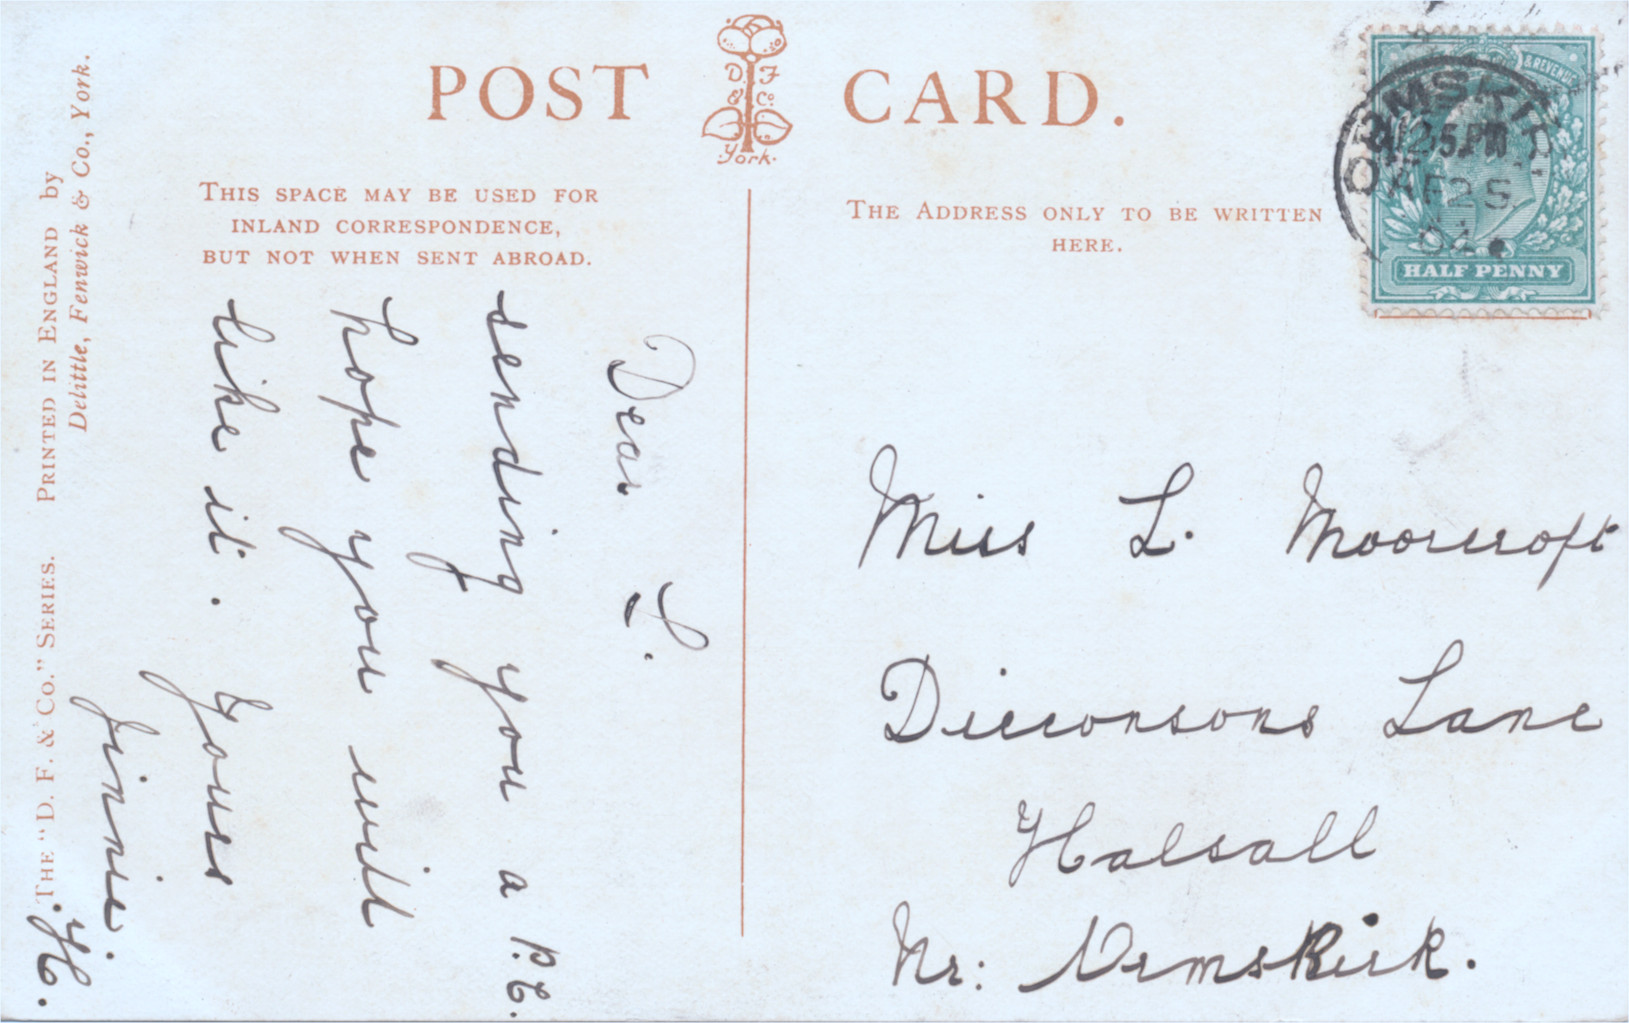 POST CARD.
D. F. & Co. York.
THIS SPACE MAY BE USED FOR
INLAND CORRESPONDENCE,
BUT NOT WHEN SENT ABROAD.
THE ADDRESS ONLY TO BE WRITTEN
HERE.
& REVENUE
HALF PENNY
ORMSKIRK
12.15 PM
04
Dear L.
sending you a P.C.
hope you will
like it. Yours
Jinnie
H.
Miss L. Moorcroft
Dicconsons Lane
Halsall
Nr: Ormskirk.
THE "D. F. & CO." SERIES. PRINTED IN ENGLAND by
Delittle, Fenwick & Co., York.